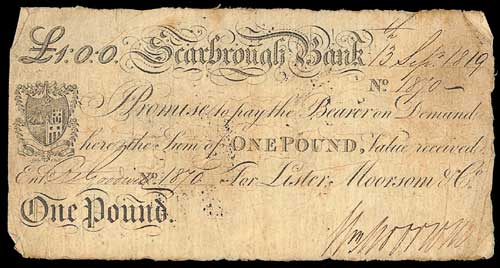 £1:0:0. Scarbrough Bank 13 Sepr. 1819
No. 1870
I Promise to pay the Bearer on Demand
here the Sum of ONE POUND, Value received.
Entd. No. 1870 For Lister, Moorsom & Co.
One Pound.